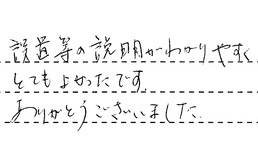 設置等の説明がわかりやすく
とてもよかったです。
ありがとうございました。